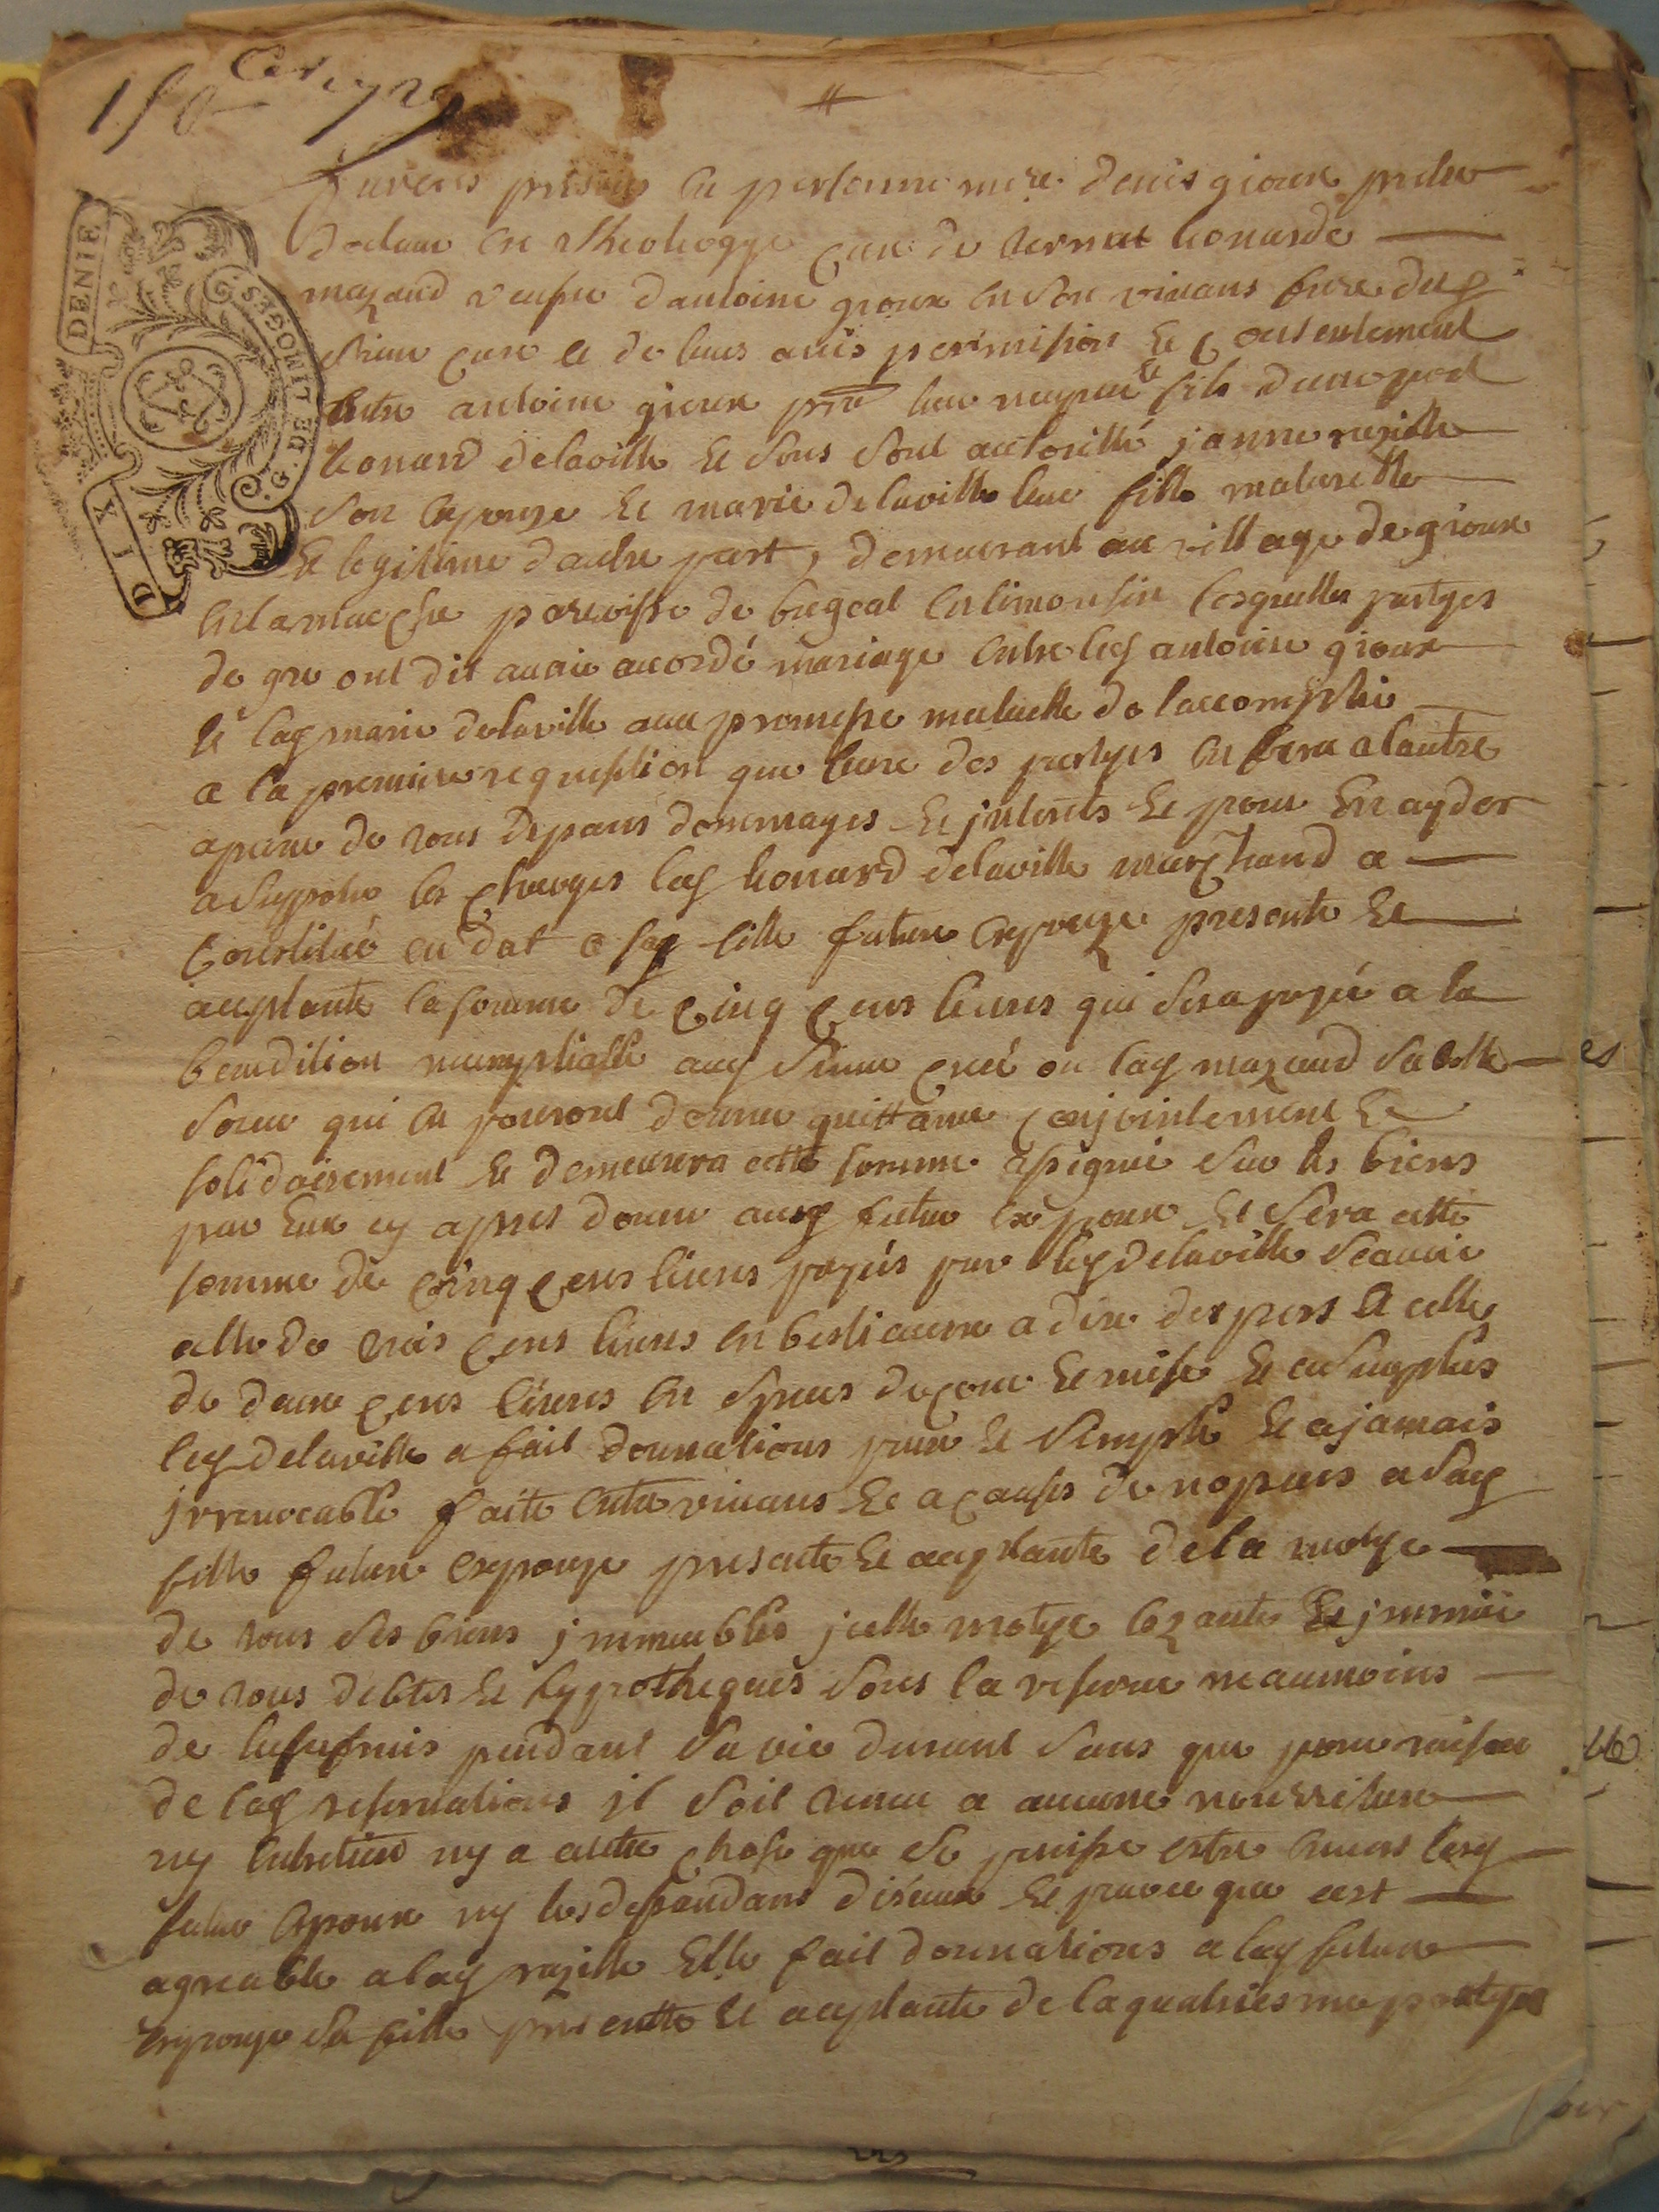 1729
G. DE LIMOGES
DIX DENIE
furent presens en personne mre denis gioux prebre
docteur en theologye cure de vernat leonarde
mazaud veufve dantoine gioux en son vivans frere dud
sieur cure et de leurs avis permision et consentement
antoine gioux leur fils dune part
leonard delaville et sous soub authorité janne
son espouze et marie delaville leur fille naturelle
et legitime dautre part, demeurant au village de gioux
en la marche parroisse de bugeat en limousin lesquelles partyes
de gre ont dit avoir accordé mariage entre led antoine gioux
et lad marie delaville avec promesse mutuelle de laccomplir
a la premiere requisition que lune des partyes en fera a lautre
a peine de tous depans dommages et jnterets et pour en ayder
a suporter les charges led leonard delaville marchand a
constitué en dot a sad fille future espouze presente et
aceptante la somme de cinq cens livres qui sera payée a la
benedition nuptialle aud sieur curé ou lad mazaud sa belle
soeur qui en pouront donner quittance conjointement et
solidairement et demeurera cette somme asignée sur les biens
par eux cy apres donne aud futur espoux et sera cette
somme de cinq cens livres payés par led delaville scavoir
celle de trois cens livres en bestiaux a dire dexpers et celle
de deux cens livres en especes de cour et mise et a surplus
led delaville a fait donnations pure et simple et a jamais
jrrevocable faite entre vivans et a causes de nopces a sad
fille future espouze presente et aceptante de la motye
de tous ses biens jmmeubles jcelle motye exante et jmmune
de tous debtes et hypotheques sous la reserve neaumoins
de lusufruis pendant sa vie durant sans que pour raison
de lad reservations jl soit tenue a aucune nourriture
ny entretien ny a autre chose que se puisse estre envers lesd
futur espoux ny les dependans diceux et parce que cest
agreable a lad elle fait donnations a lad future
espouze sa fille presente et aceptante de la quatriesme partye